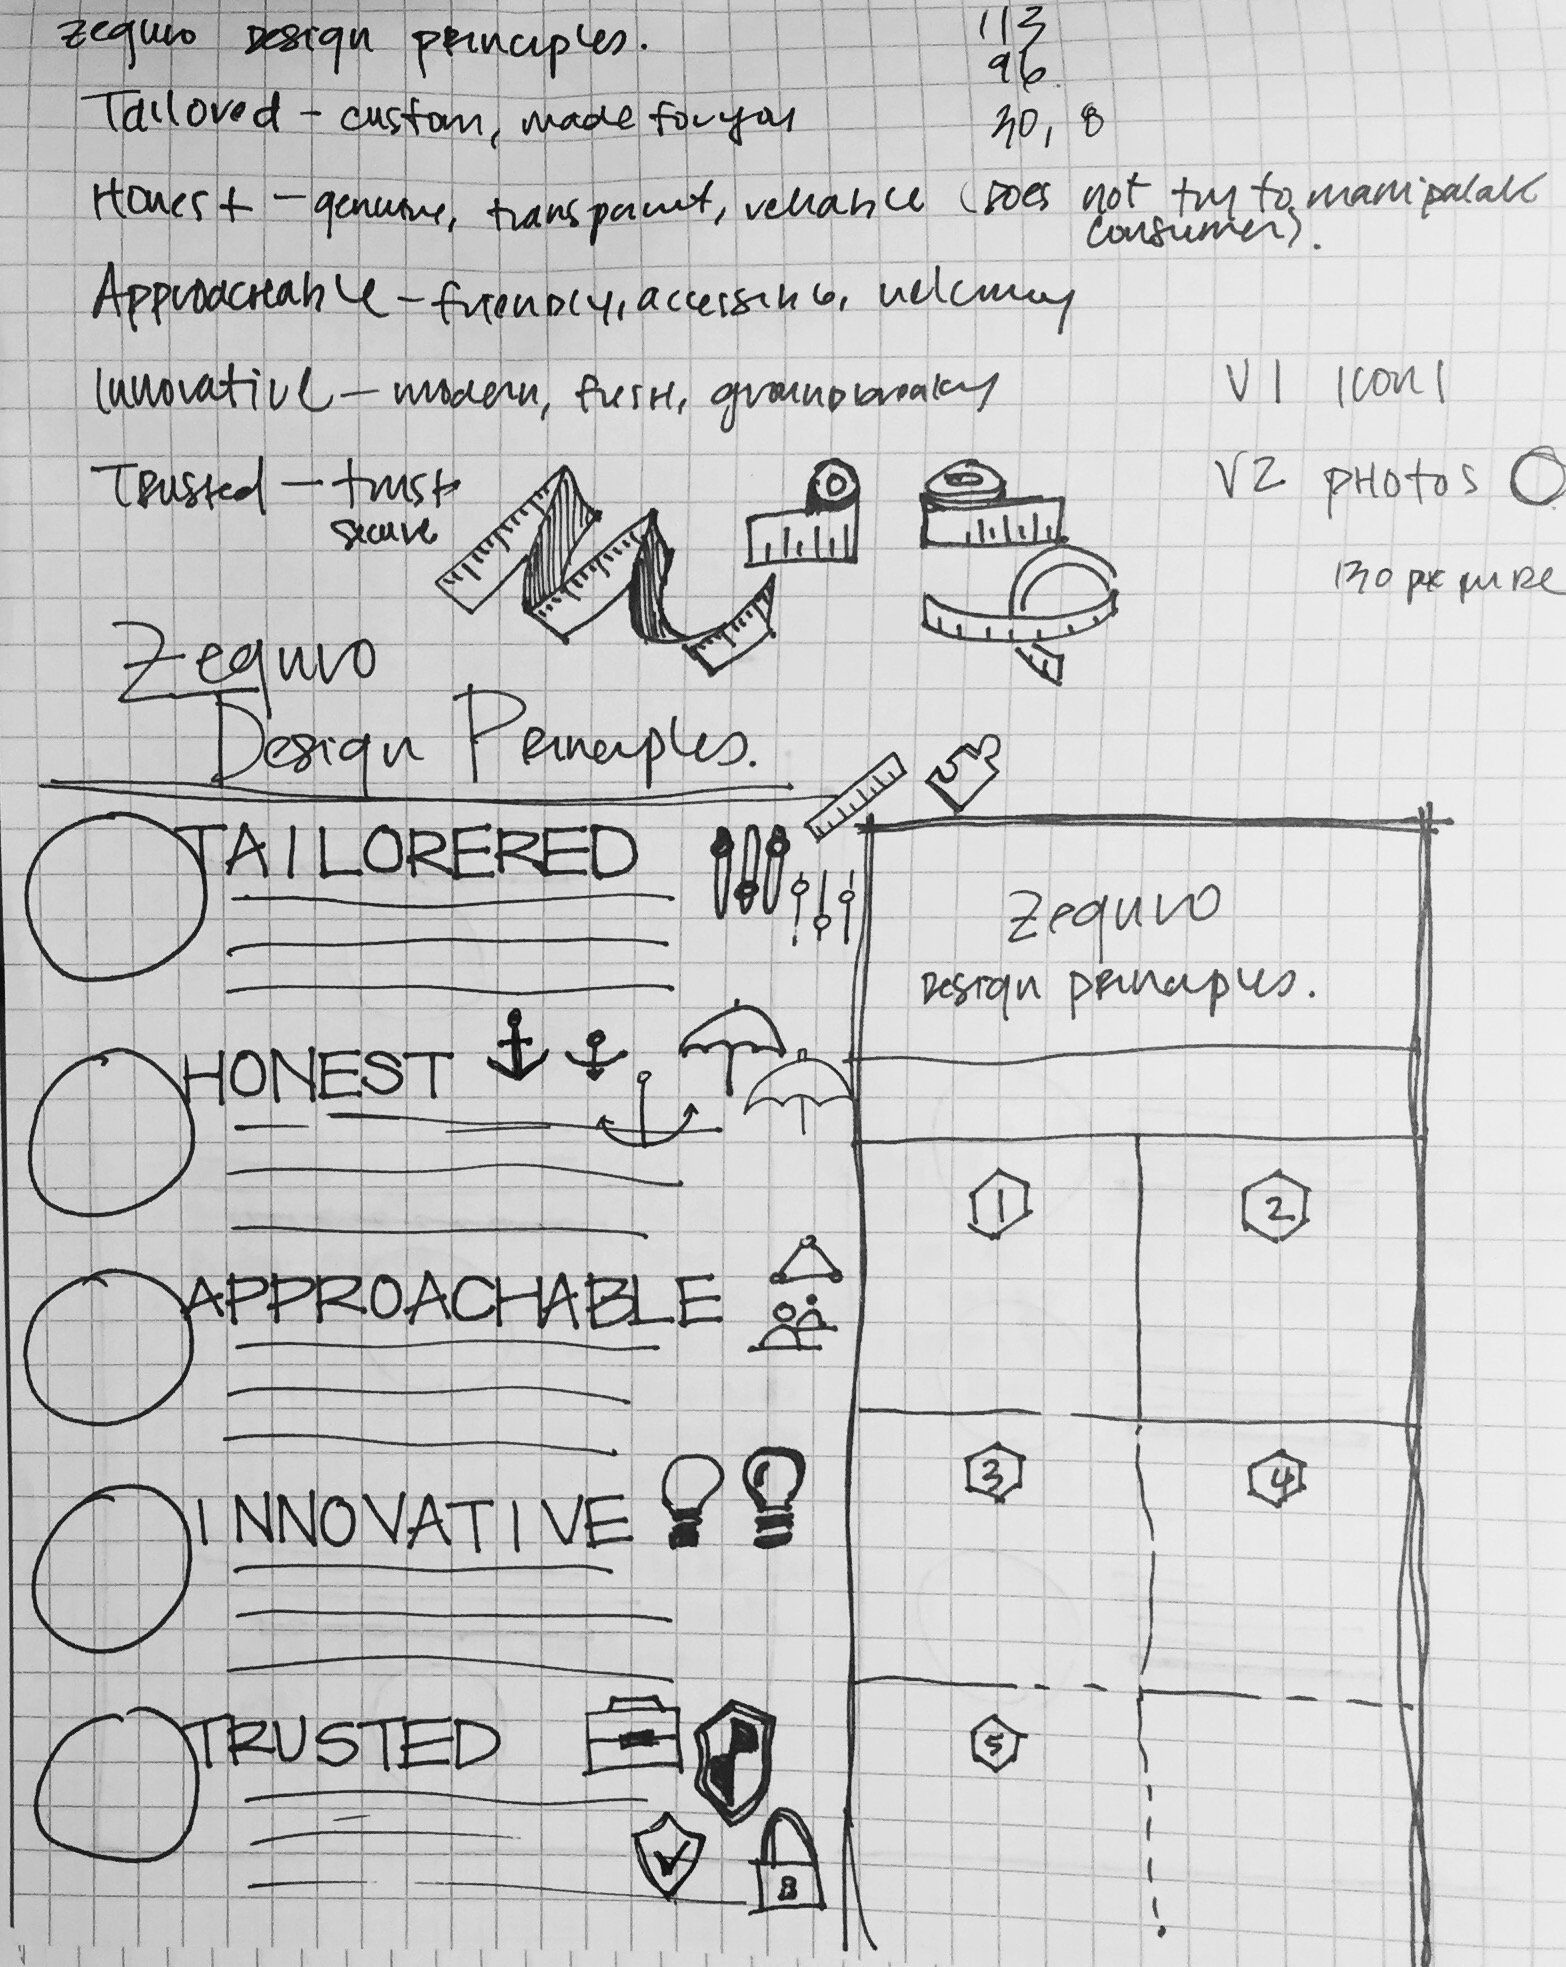 Zeguro Design principles.
113
96
Tailored - custom, made for you
30, 8
Honest - genuine, transparent, reliable (Does not try to manipulate
consumer).
Approachable - friendly, accessible, welcoming
Innovative - modern, fresh, groundbreaking
V1 icon1
Trusted - trust
secure
V2 photos
130 px
Zeguro
Design Principles.
TAILORERED
Zeguro
Design principles.
HONEST
1
2
APPROACHABLE
3
4
INNOVATIVE
TRUSTED
5